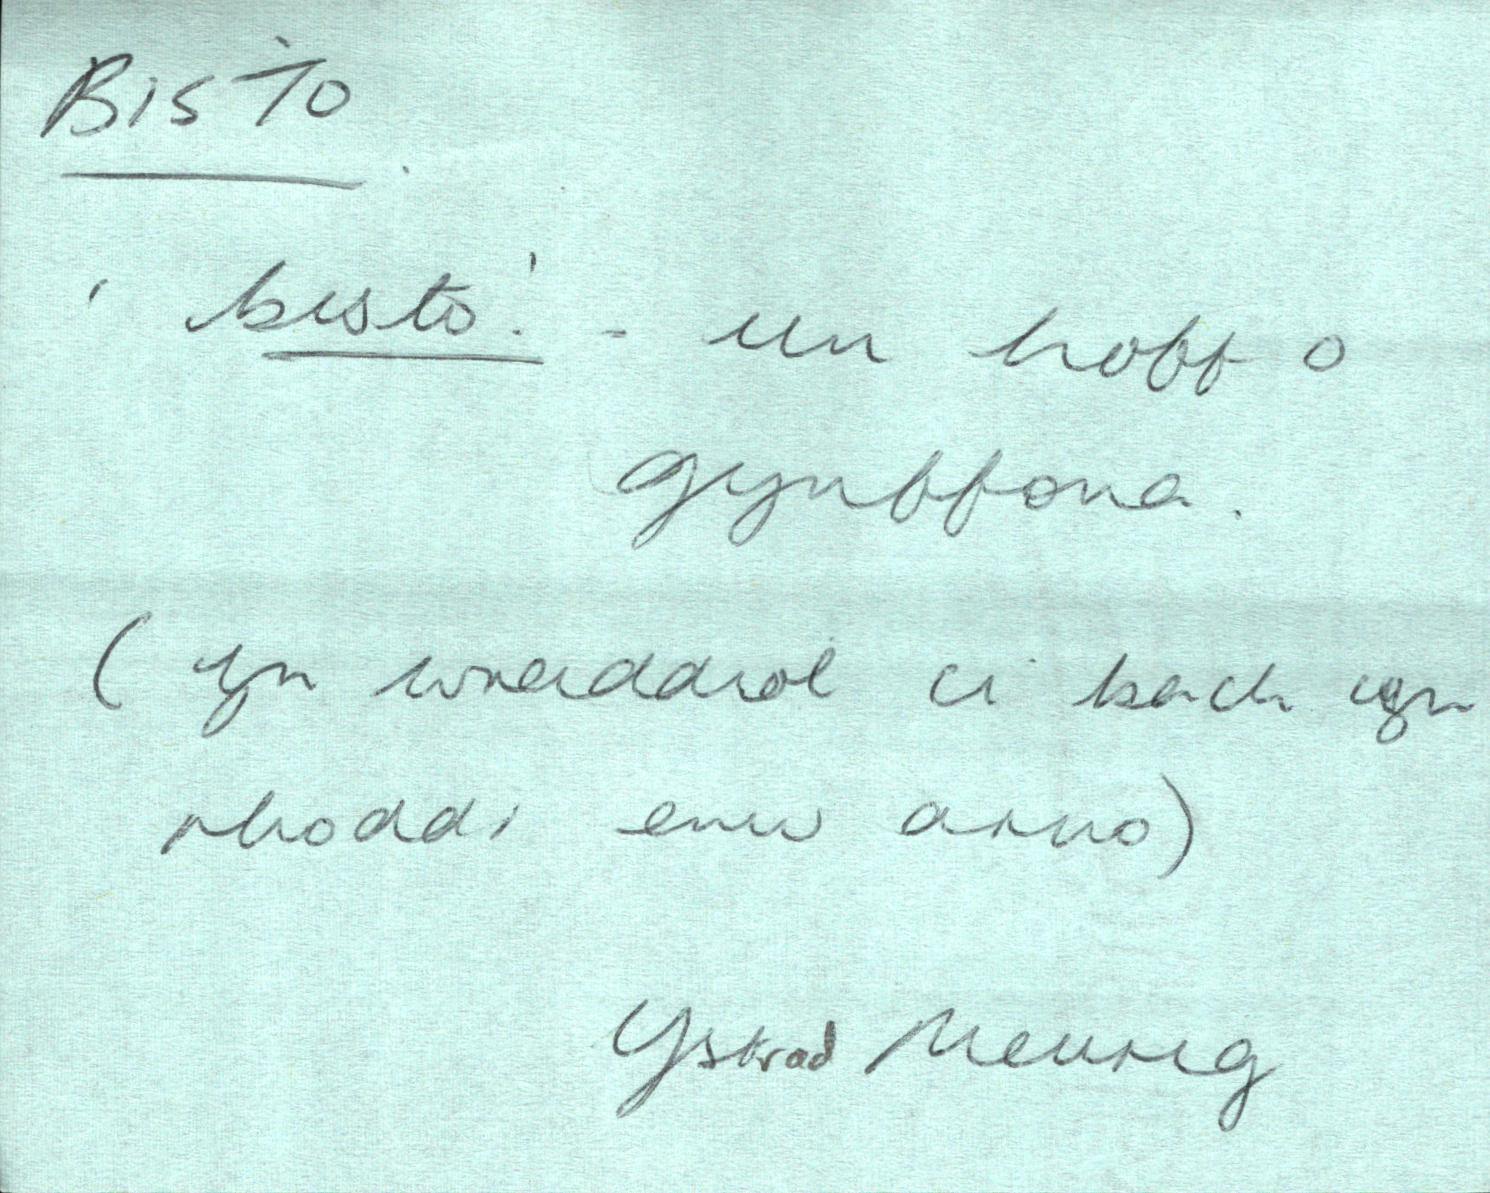 BISTO
'bisto!' - un hoff o
gynffona.
(yn wreiddiol ci bach yn
rhoddi enw arno)
Ystrad Meurig